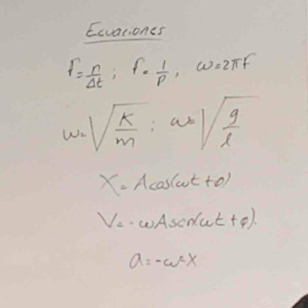 Ecuaciones
f = n/Δt ; f = 1/P , ω = 2πF
ω = √(K/m) ; ω = √(g/l)
X = A cos(ωt + φ)
V = -ωA sen(ωt + φ).
a = -ω²X